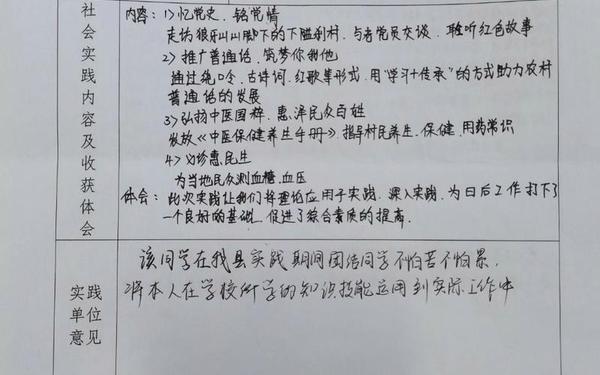 社会实践内容及收获体会
内容：1>忆党史、铭党情
走访狼牙山山脚下的下隘刹村、与老党员交谈、聆听红色故事
2>推广普通话、筑梦你我他
通过绕口令、古诗词、红歌等形式，用“学习+传承”的方式助力农村
普通话的发展
3>弘扬中医国粹、惠泽民众百姓
发放《中医保健养生手册》指导村民养生、保健、用药常识
4>义诊惠民生
为当地民众测血糖、血压
体会：此次实践让我们将理论应用于实践、深入实践、为日后工作打下了
一个良好的基础、促进了综合素质的提高.
实践单位意见
该同学在我县实践期间团结同学不怕苦不怕累，
将本人在学校所学的知识技能运用到实际工作中